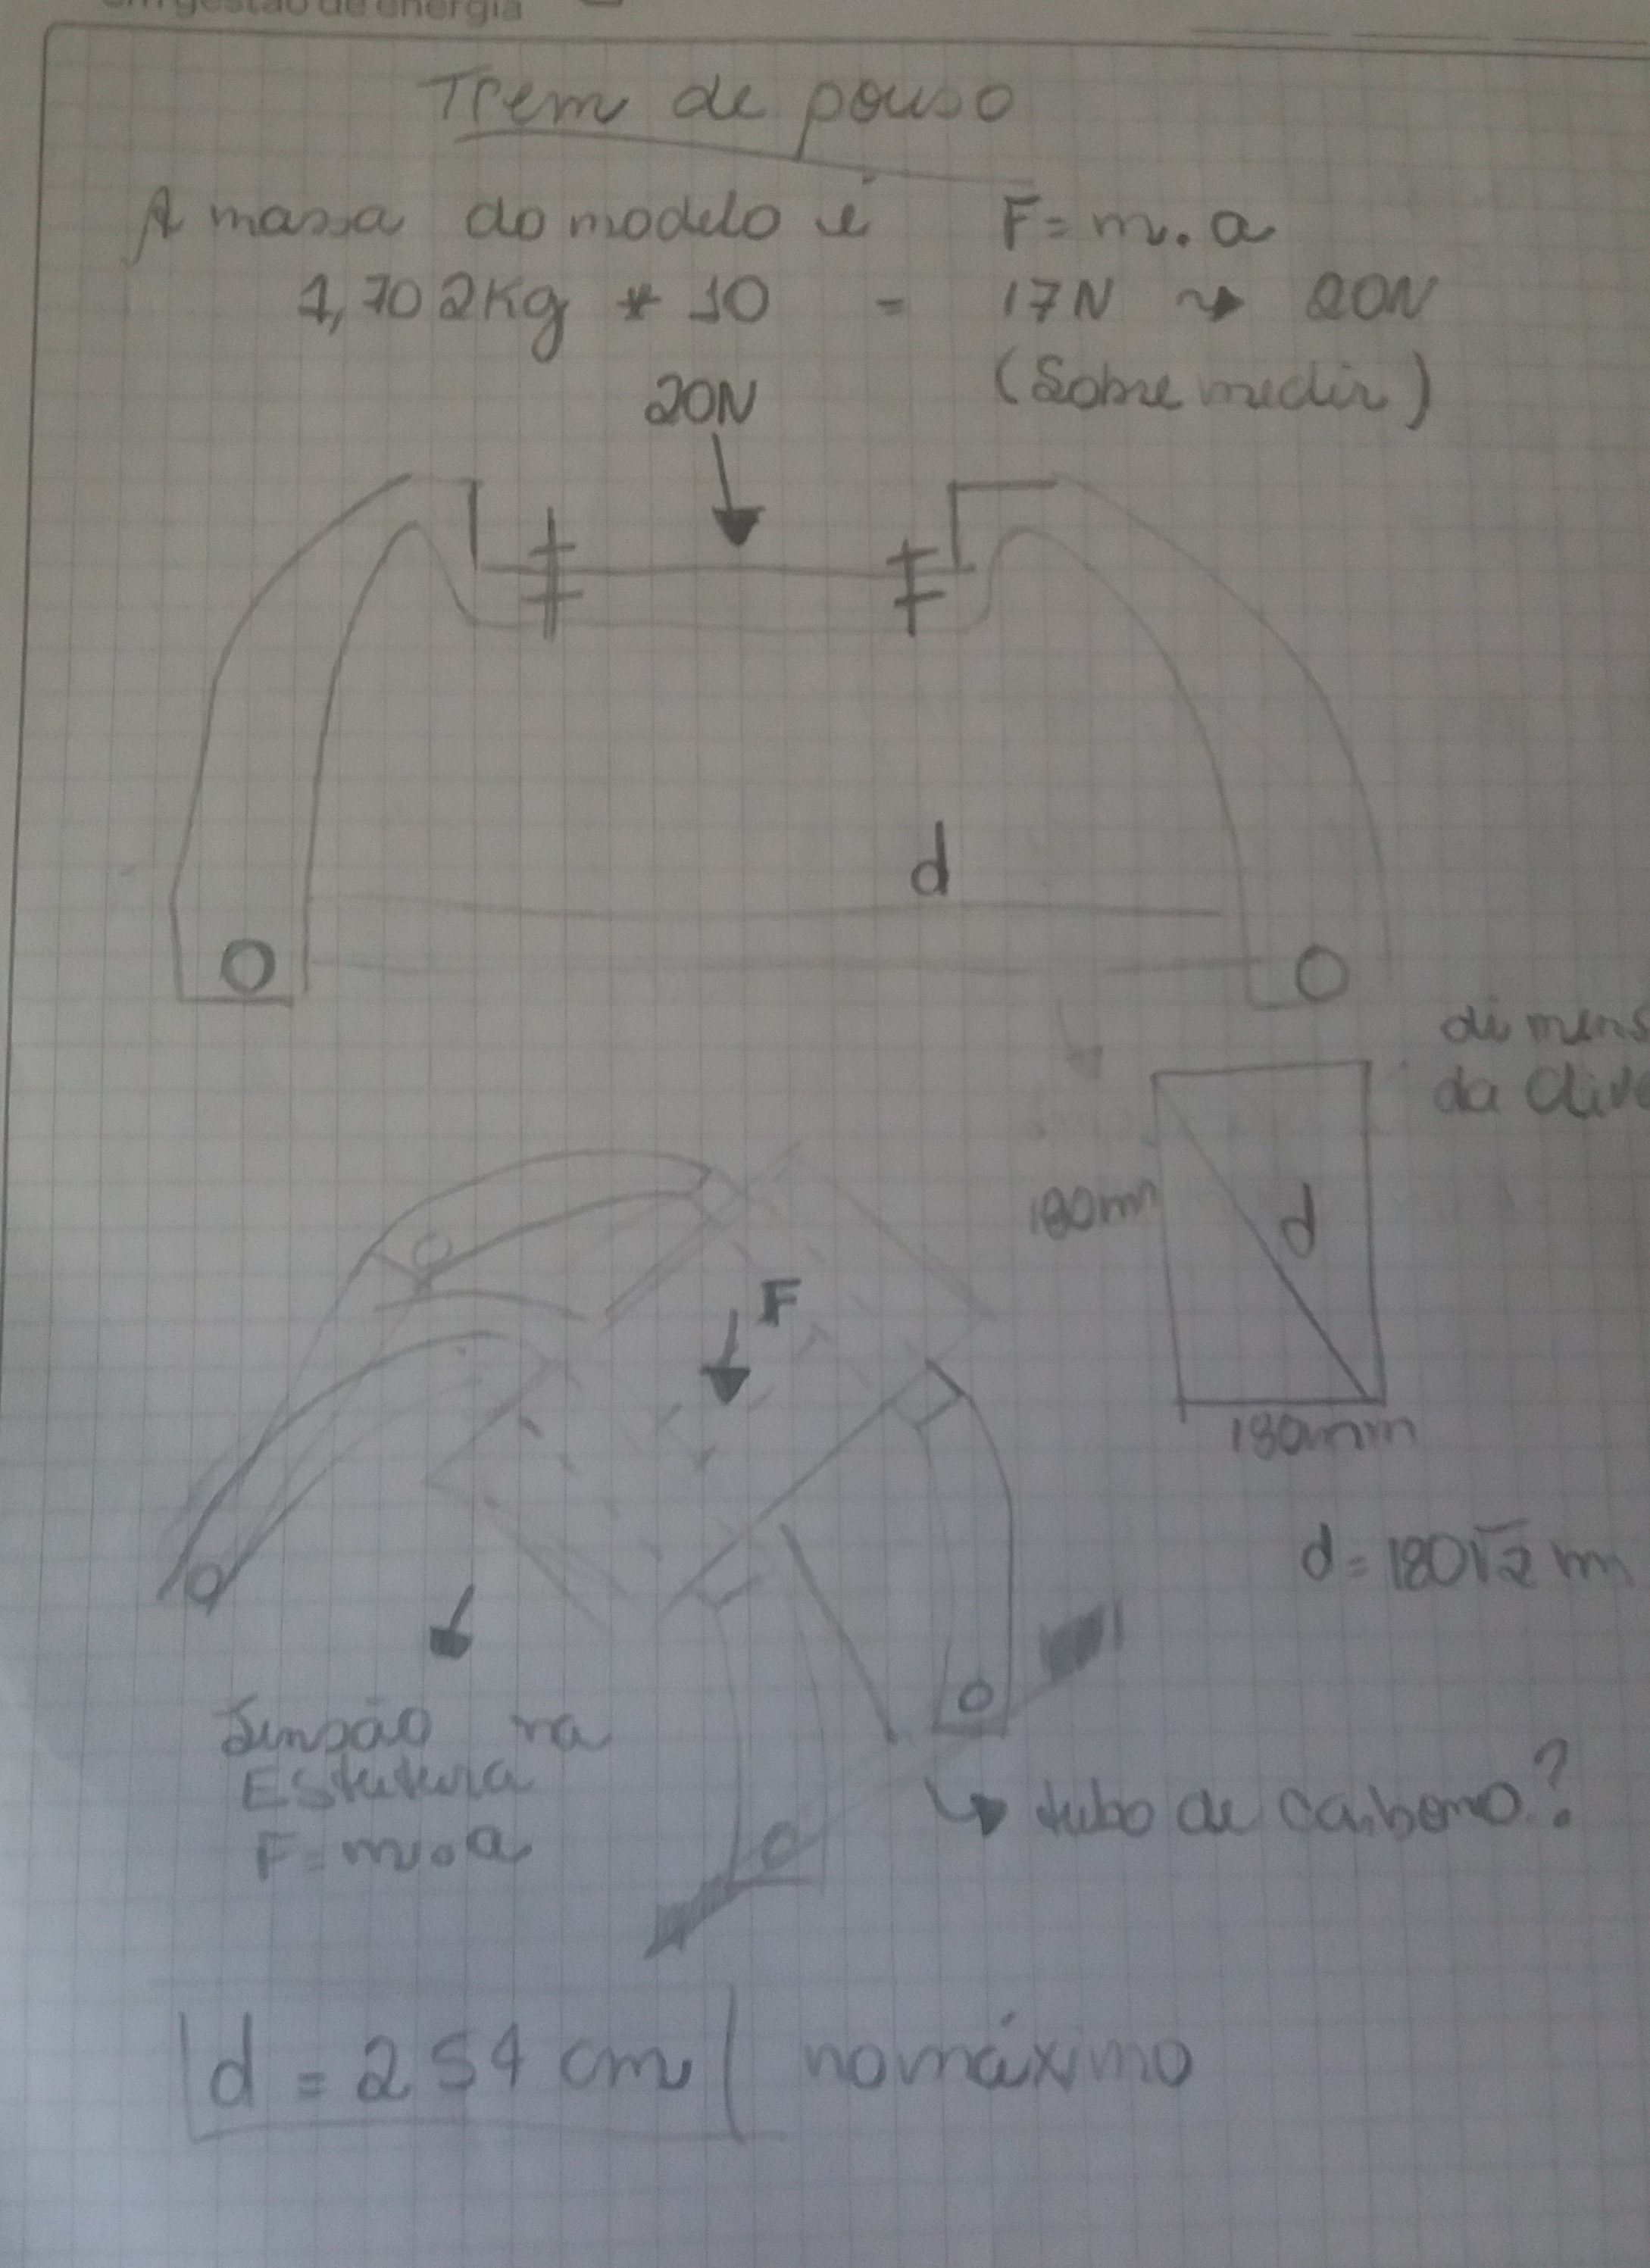 em gestão de energia
Trem de pouso
A massa do modelo é F = m . a
1,702Kg * 10 = 17N → 20N
(Sobre medir)
20N
d
O O
da
180mm
d
180mm
d = 180√2 m
F
Tensão na
Estutura
F = m . a
tubo de carbono?
d = 254 cm no máximo